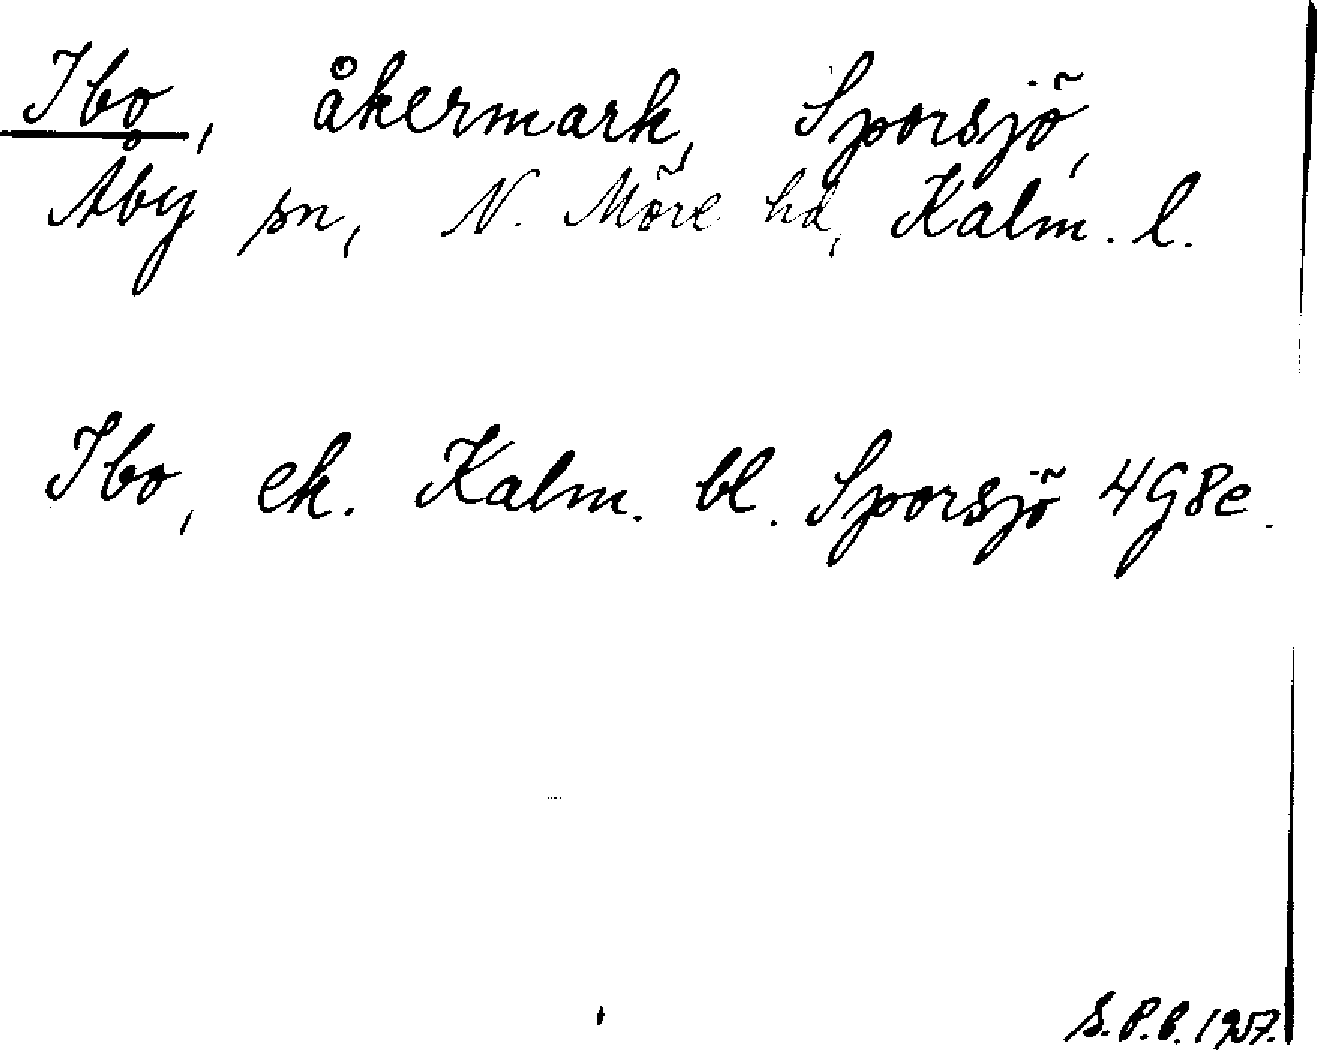 Ibo, åkermark, Sporsjö,
Åby sn, N. Möre hd, Kalm. l.
Ibo, ek. Kalm. bl. Sporsjö 4G8e.
S.P.B. 1957.